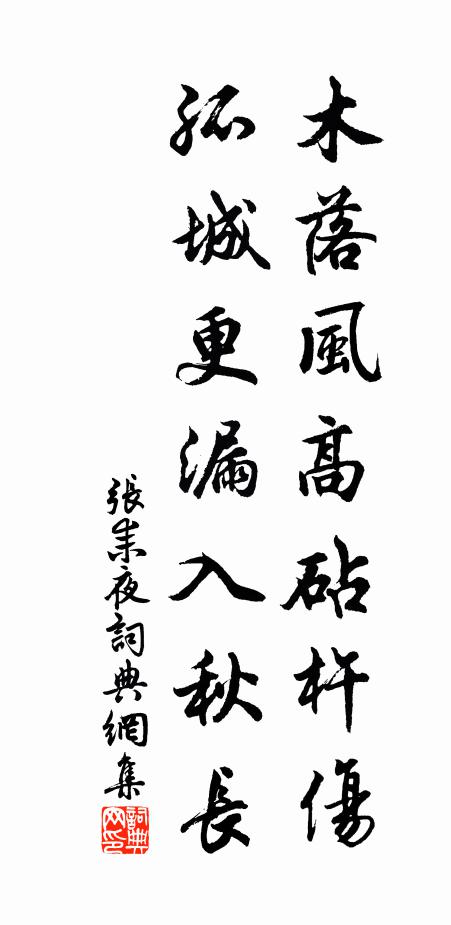 木落風高砧杵傷
孤城更漏入秋長
張耒夜詞典網集
詞典
网印